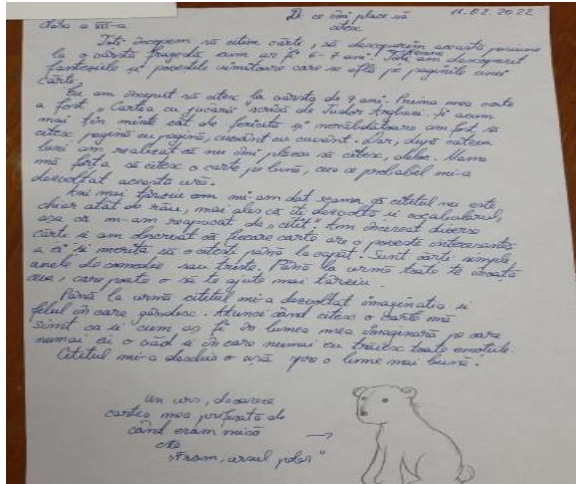 De ce îmi place să 11.02.2022
Clasa a VII-a citesc
Toți începem să citim cărți, să descoperim această pasiune
la o vârstă fragedă cum ar fi 6-7 ani. Toți am descoperit
fanteziile și poveștile uimitoare care se află pe paginile unei
cărți.
Eu am început să citesc la vârsta de 7 ani. Prima mea carte
a fost „Cartea cu jucării" scrisă de Tudor Arghezi. Și acum
mai țin minte cât de fericită și nerăbdătoare am fost să
citesc pagină cu pagină, cuvânt cu cuvânt. Dar, după câteva
luni am realizat că nu îmi plăcea să citesc, deloc. Mama
mă forța să citesc o carte pe lună, ceea ce probabil mi-a
dezvoltat această ură.
Ani mai târziu mi-am dat seama că cititul nu este
chiar atât de rău, mai ales că îți dezvolta și vocabularul,
așa că m-am reapucat de „citit". Am încercat diverse
cărți și am observat că fiecare carte are o poveste interesantă
a ei și merită să o citești până la capăt. Sunt cărți simple,
unele de comedie sau triste. Până la urmă toate te învață
ceva, care poate o să te ajute mai târziu.
Până la urmă cititul mi-a dezvoltat imaginația și
felul în care gândesc. Atunci când citesc o carte mă
simt ca și cum aș fi în lumea mea imaginară pe care
numai eu o văd și în care numai eu trăiesc toate emoțiile.
Cititul mi-a deschis o ușă spre o lume mai bună.
un urs, deoarece
cartea mea preferată de
când eram mică →
este
„Fram, ursul polar"